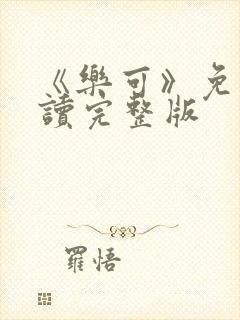 《樂可》免
讀完整版
羅悟